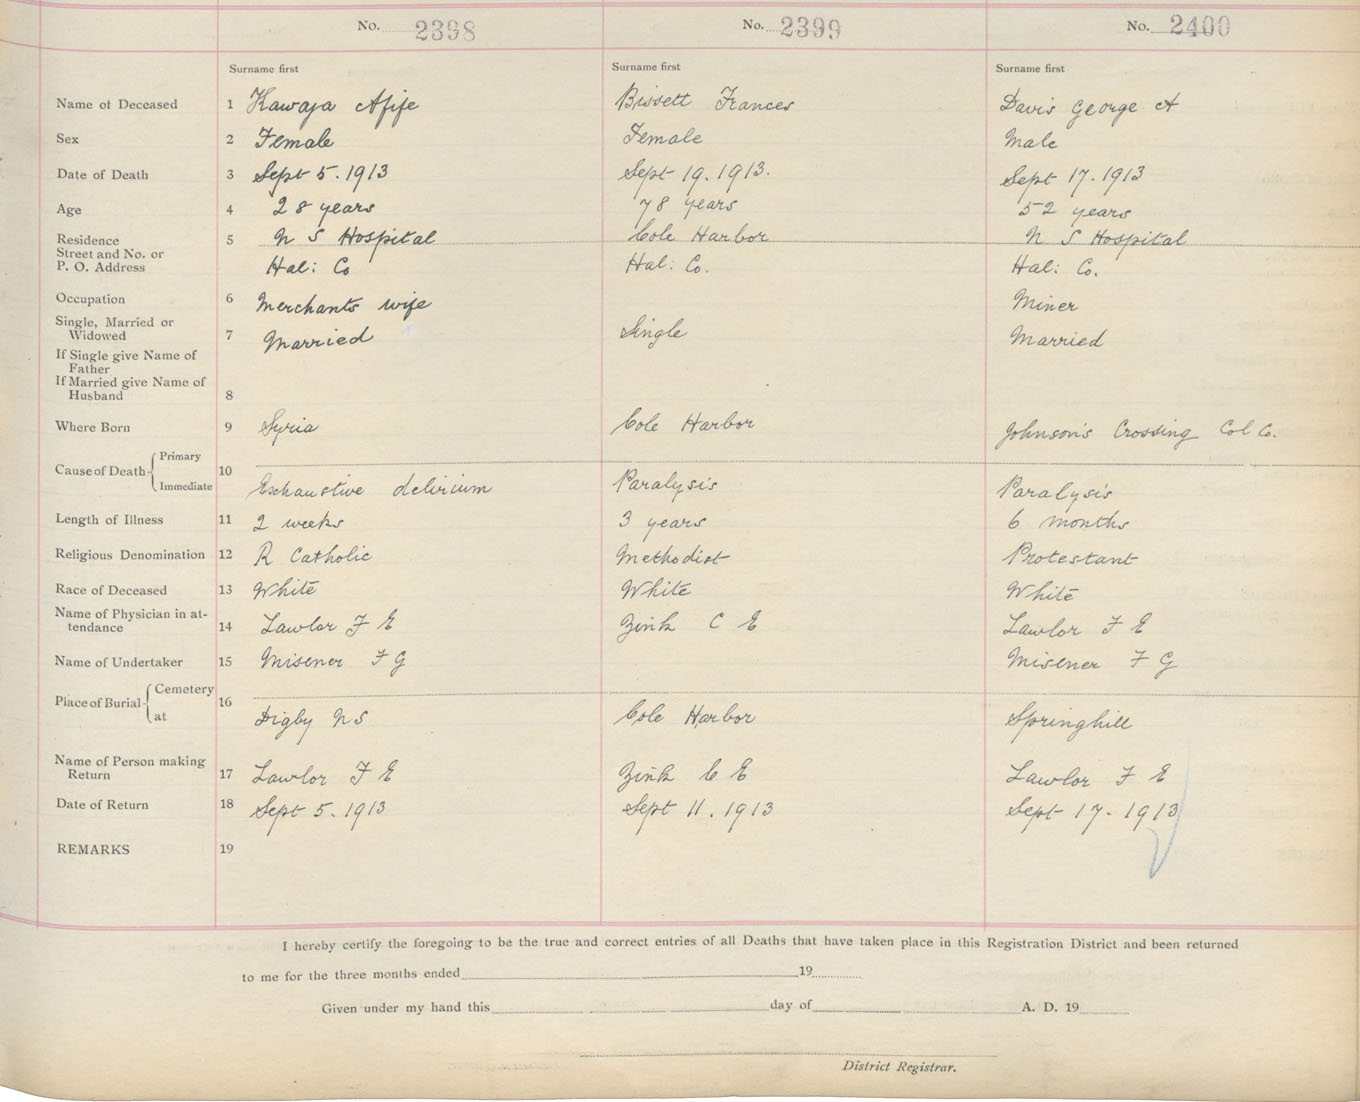 No. 2398 No. 2399 No. 2400
Surname first Surname first Surname first
Name of Deceased 1 Kawaja Afife Bissett Frances Davis George A
Sex 2 Female Female Male
Date of Death 3 Sept 5. 1913 Sept 19. 1913. Sept 17. 1913
Age 4 28 years 78 years 52 years
Residence 5 N S Hospital Cole Harbor N S Hospital
Street and No. or
P. O. Address Hal: Co Hal: Co. Hal: Co.
Occupation 6 Merchants wife Miner
Single, Married or
Widowed 7 Married Single Married
If Single give Name of
Father
If Married give Name of
Husband 8
Where Born 9 Syria Cole Harbor Johnson's Crossing Col Co.
Cause of Death Primary 10
Immediate Exhaustive delirium Paralysis Paralysis
Length of Illness 11 2 weeks 3 years 6 months
Religious Denomination 12 R Catholic Methodist Protestant
Race of Deceased 13 White White White
Name of Physician in at-
tendance 14 Lawlor F E Zink C E Lawlor F E
Name of Undertaker 15 Misener F G Misener F G
Place of Burial Cemetery 16
at Digby N S Cole Harbor Springhill
Name of Person making
Return 17 Lawlor F E Zink C E Lawlor F E
Date of Return 18 Sept 5. 1913 Sept 11. 1913 Sept 17. 1913
REMARKS 19
I hereby certify the foregoing to be the true and correct entries of all Deaths that have taken place in this Registration District and been returned
to me for the three months ended 19
Given under my hand this day of A. D. 19
District Registrar.